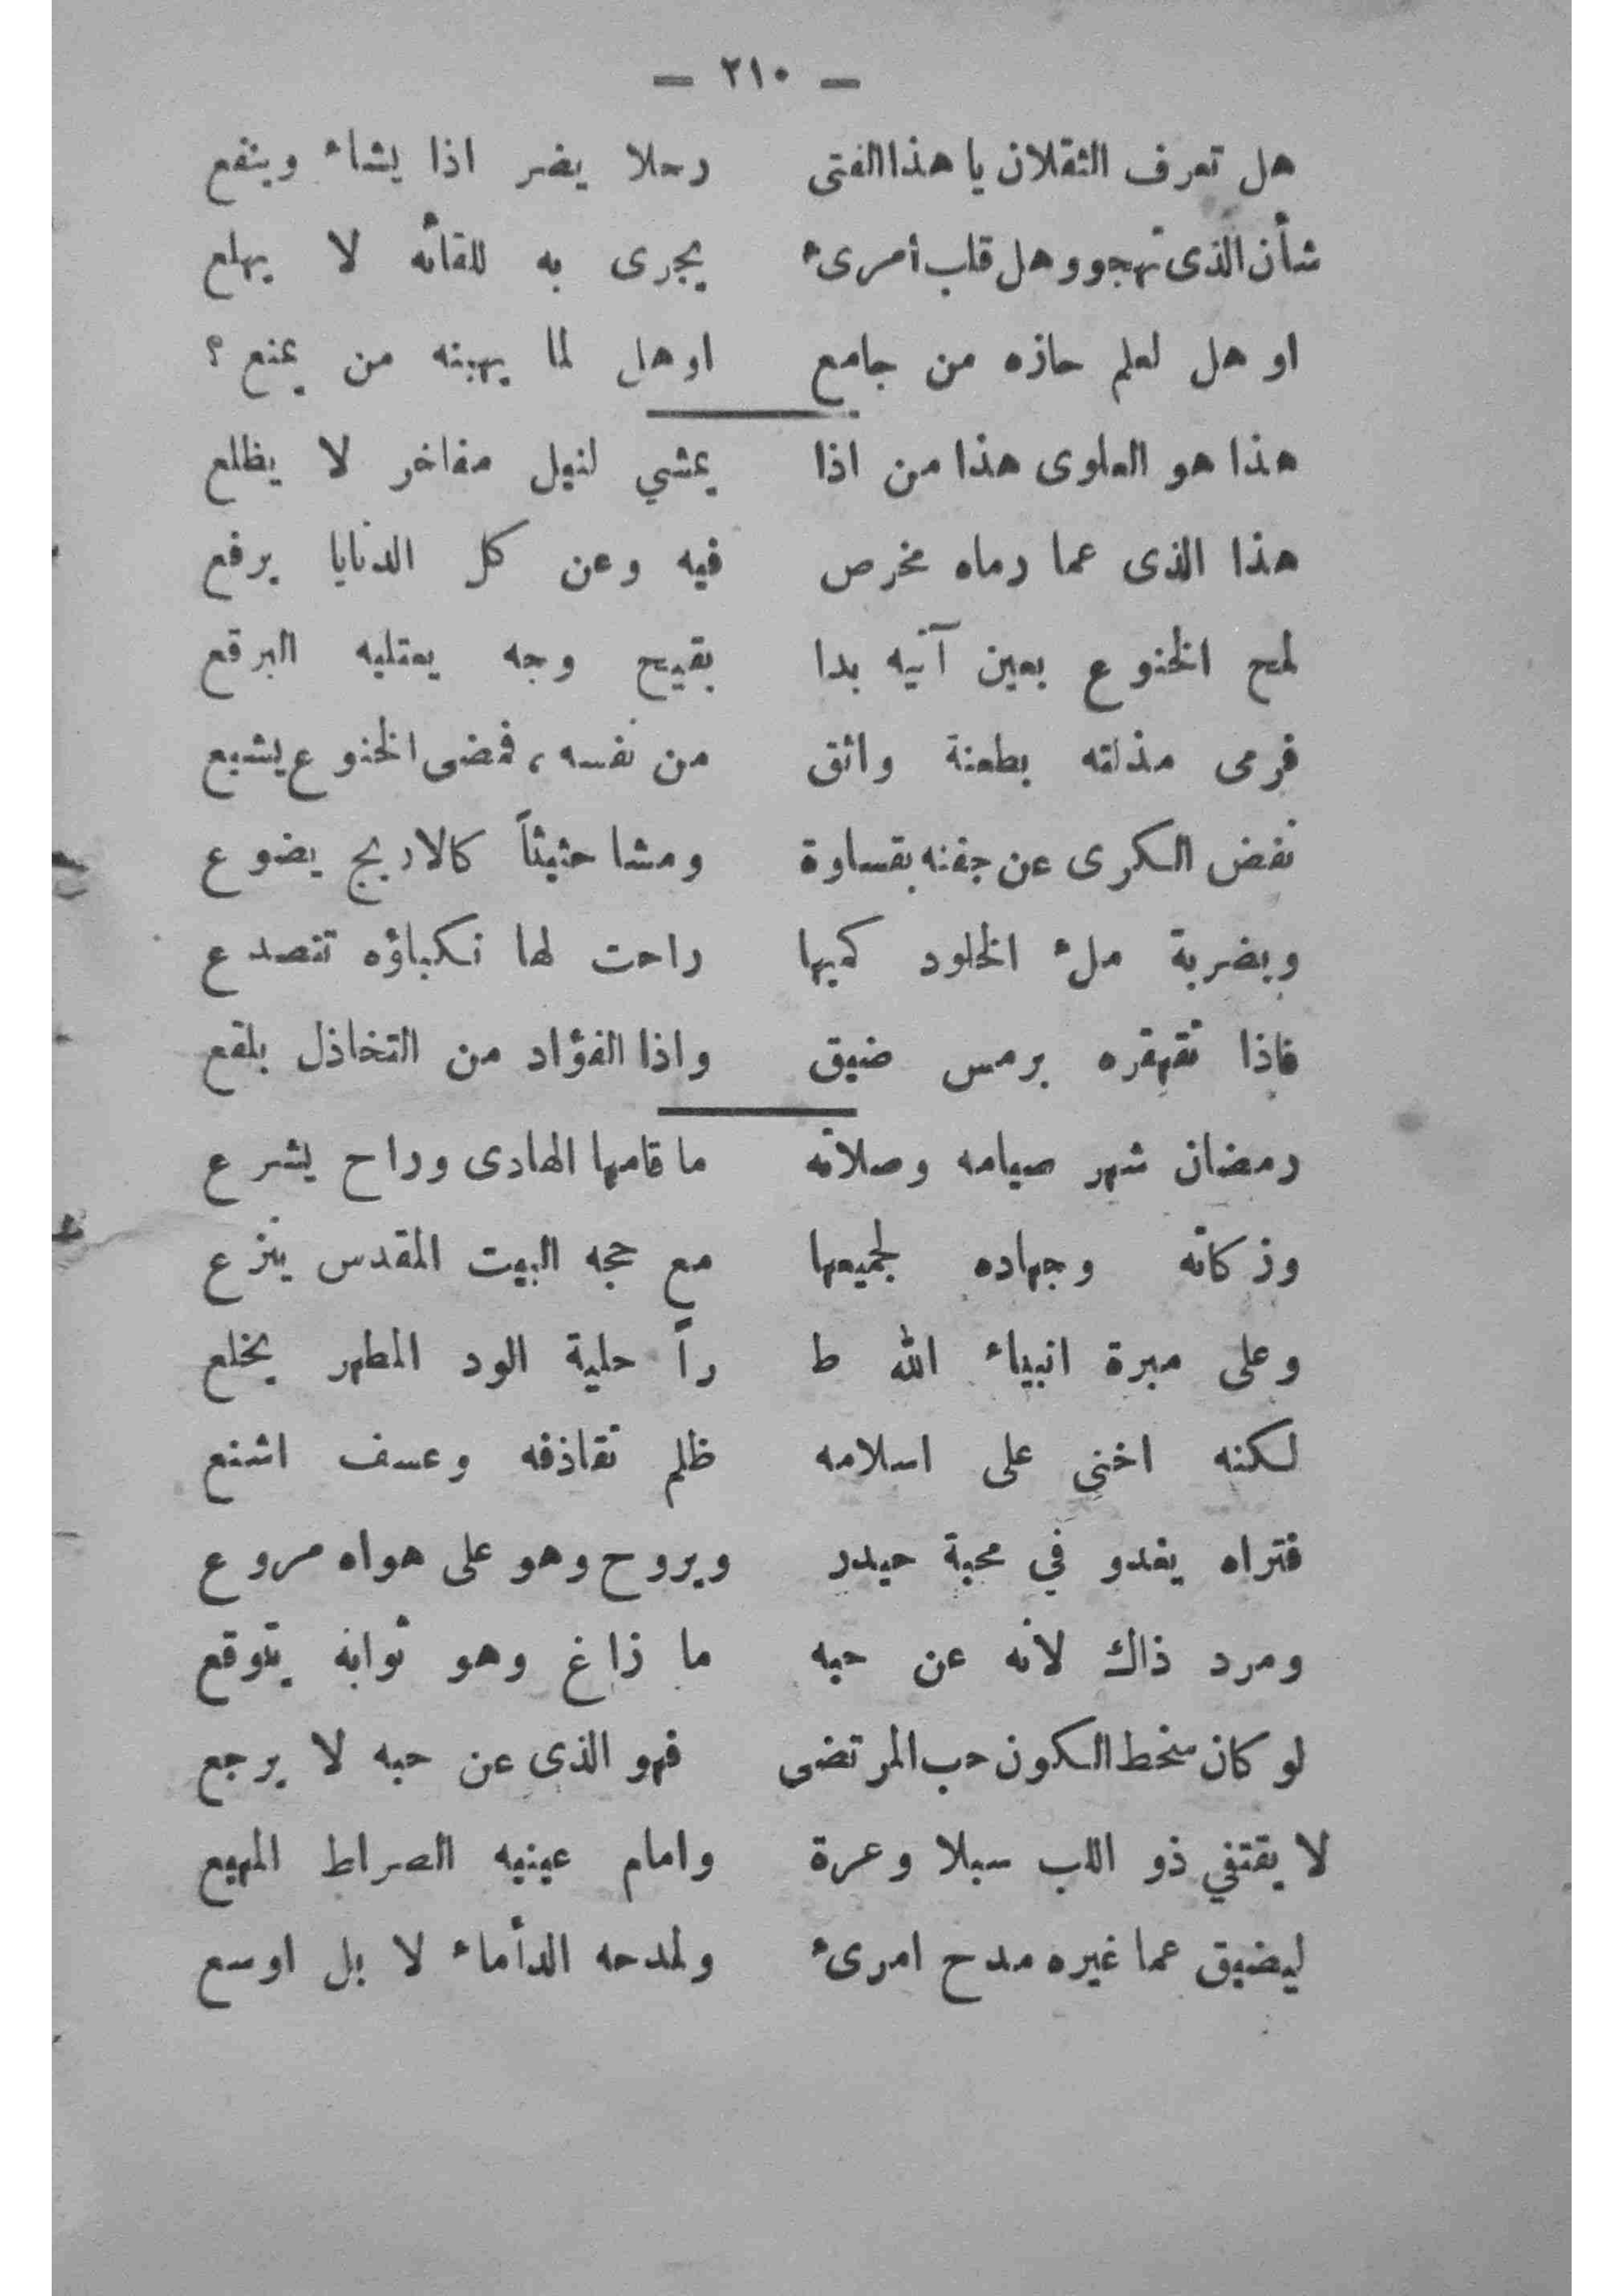 — ٢١٠ —
هل تعرف الثقلان يا هذا الفتى رجلا يضر اذا يشاء وينفع
شأن الذى تهجو وهل قلب أمرىء يجرى به للقائه لا يهلع
او هل لعلم حازه من جامع او هل لما يهبنه من يمنع ؟
هذا هو العلوى هذا من اذا يمشي لنيل مفاخر لا يظلع
هذا الذى عما رماه مخرص فيه وعن كل الدنايا يرفع
لمح الخنوع بعين آنيه بدا بقبيح وجه يعتليه البرقع
فرمى مذلته بطعنة واثق من نفسه ، فمضى الخنوع يشيع
نفض الكرى عن جفنه بقساوة ومشا حثيثاً كالاريج يضوع
وبضربة ملء الخلود كميها راحت لها نكباؤه تتصدع
فاذا تقهقره برمس ضيق واذا الفؤاد من التخاذل بلقع
رمضان شهر صيامه وصلاته ما قامها الهادى وراح يشرع
وزكاته وجهاده لجميعها مع حجه البيت المقدس ينزع
وعلى مبرة انبياء الله ط راً حلية الود المطهر يخلع
لكنه اخنى على اسلامه ظلم تقاذفه وعسف اشنع
فتراه يغدو في محبة حيدر ويروح وهو على هواه مروع
ومرد ذاك لانه عن حبه ما زاغ وهو ثوابه يتوقع
لو كان سخط الكون حب المرتضى فهو الذى عن حبه لا يرجع
لا يقتفي ذو اللب سبلا وعرة وامام عينيه الصراط المهيع
ليضيق عما غيره مدح امرىء ولمدحه الدأماء لا بل اوسع